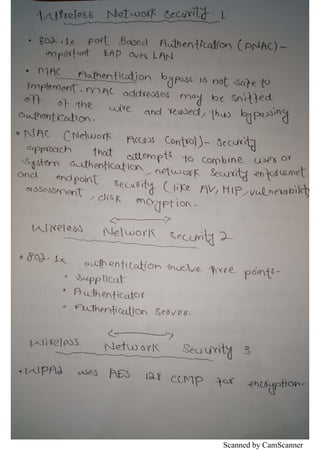 Wireless Network Security 1
• 802.1x port Based Authentication (PNAC) -
important EAP over LAN
• MAC Authentication bypass is not safe to
Implement. MAC addresses may be sniffed
off of the wire and reused, thus bypassing
authentication.
• NAC (Network Access Control)- Security
approach that attempts to combine user or
system authentication, network security enforcemet
and endpoint security (like AV, HIP, vulnerability
assessment, disk encryption.
Wireless Network Security 2
• 802.1x authentication involve three points-
• Supplicat
• Authenticator
- Authentication Server.
Wireless Network Security 3
• WPA2 uses AES 128 CCMP for encryption.
Scanned by CamScanner